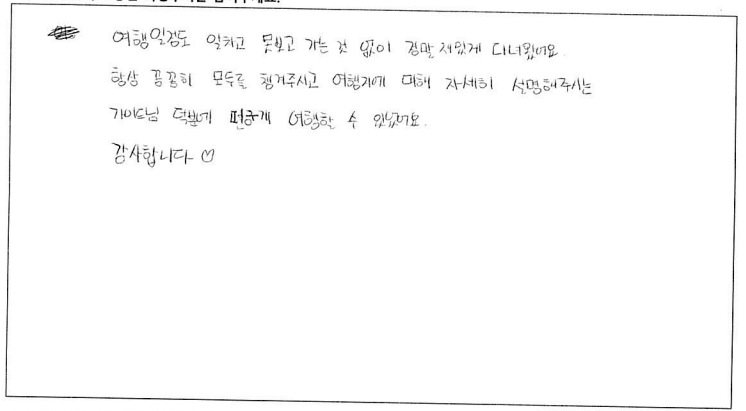 여행일정도 일치고 못보고 가는 것 없이 정말 재밌게 다녀왔어요.
항상 꼼꼼히 모두를 챙겨주시고 여행지에 대해 자세히 설명해주시는
가이드님 덕분에 편하게 여행할 수 있었어요.
감사합니다 ♡